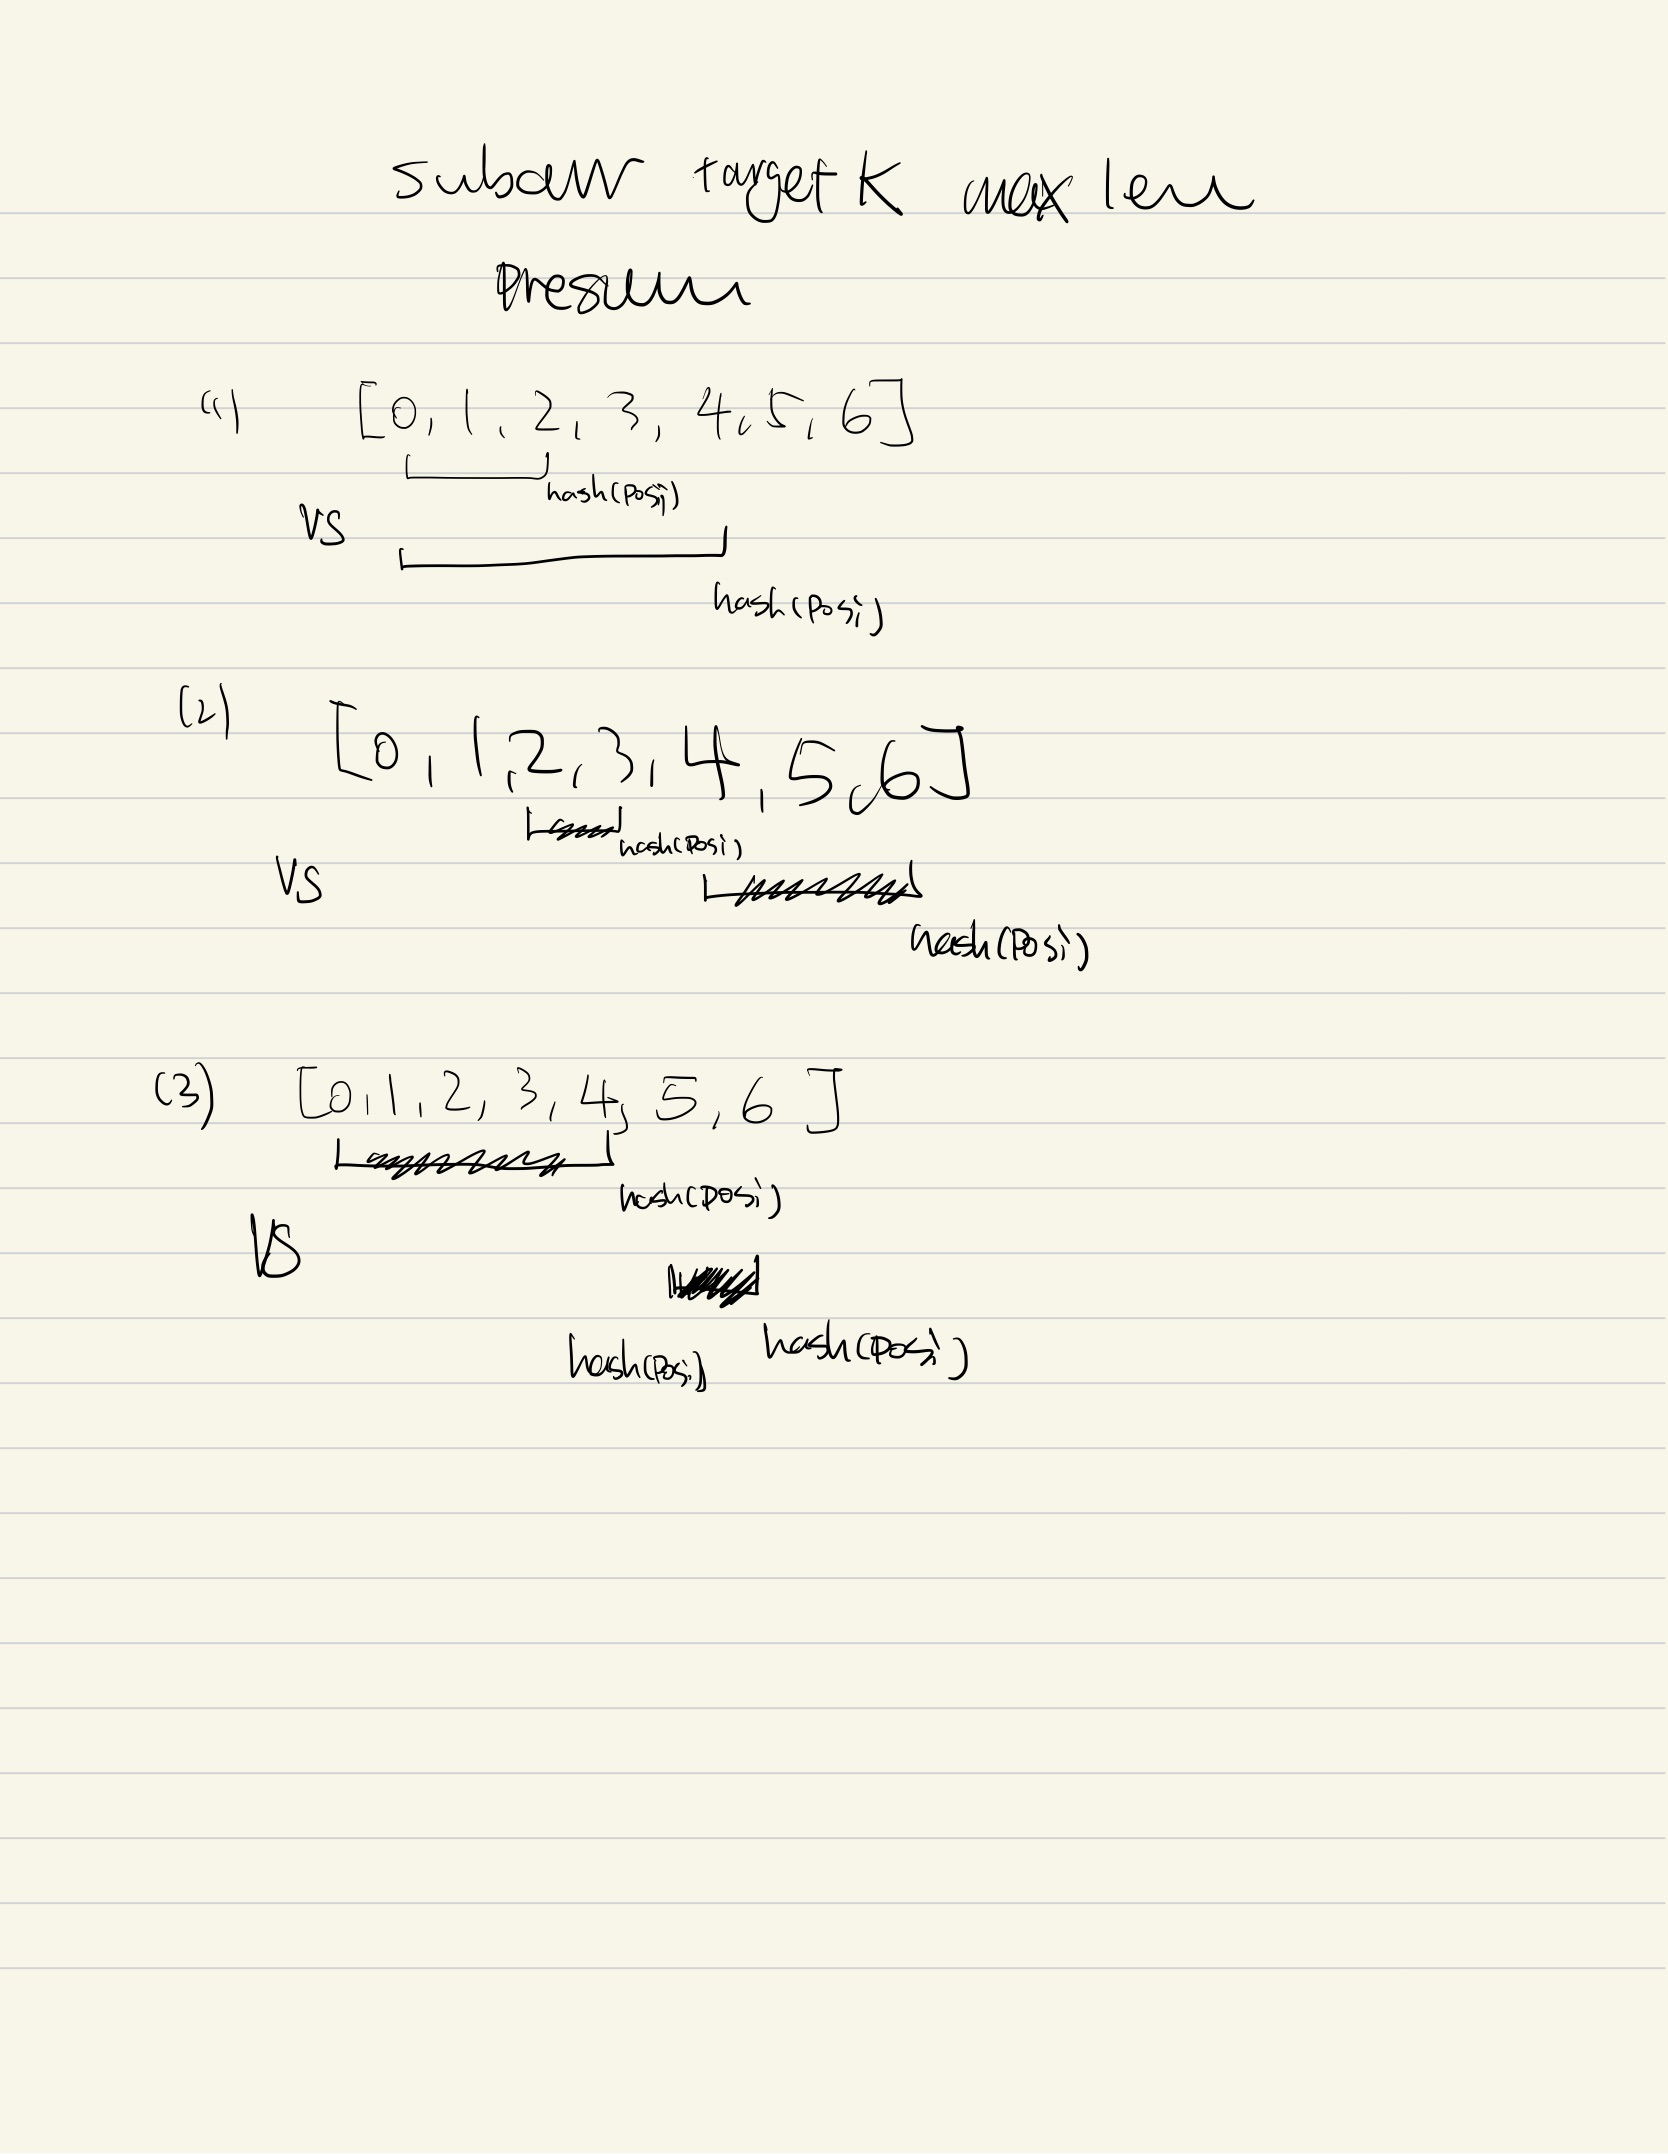 subarr target K max len
presum
(1) [0, 1, 2, 3, 4, 5, 6]
hash(posi)
VS
hash(posi)
(2) [0, 1, 2, 3, 4, 5, 6]
hash(posi)
VS
hash(posi)
(3) [0, 1, 2, 3, 4, 5, 6]
hash(posi)
VS
hash(posi) hash(posi)